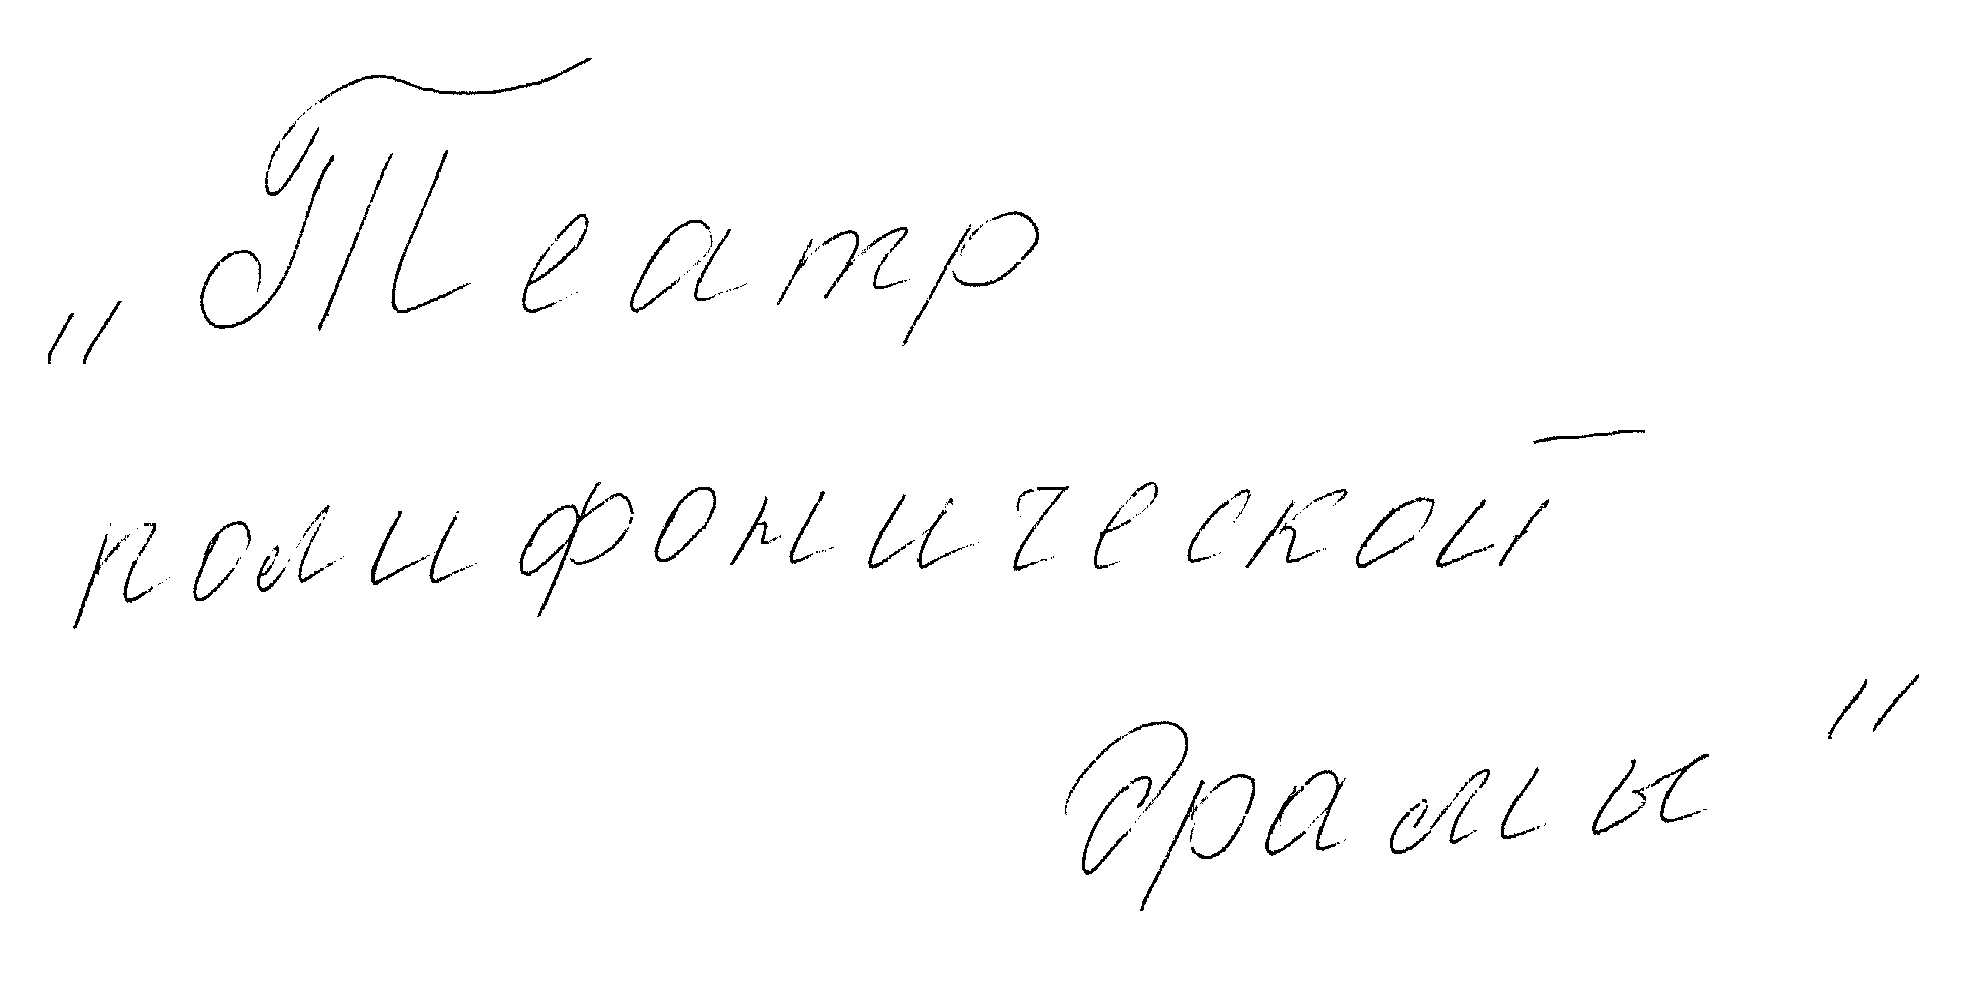 „Театр
полифонической
драмы"